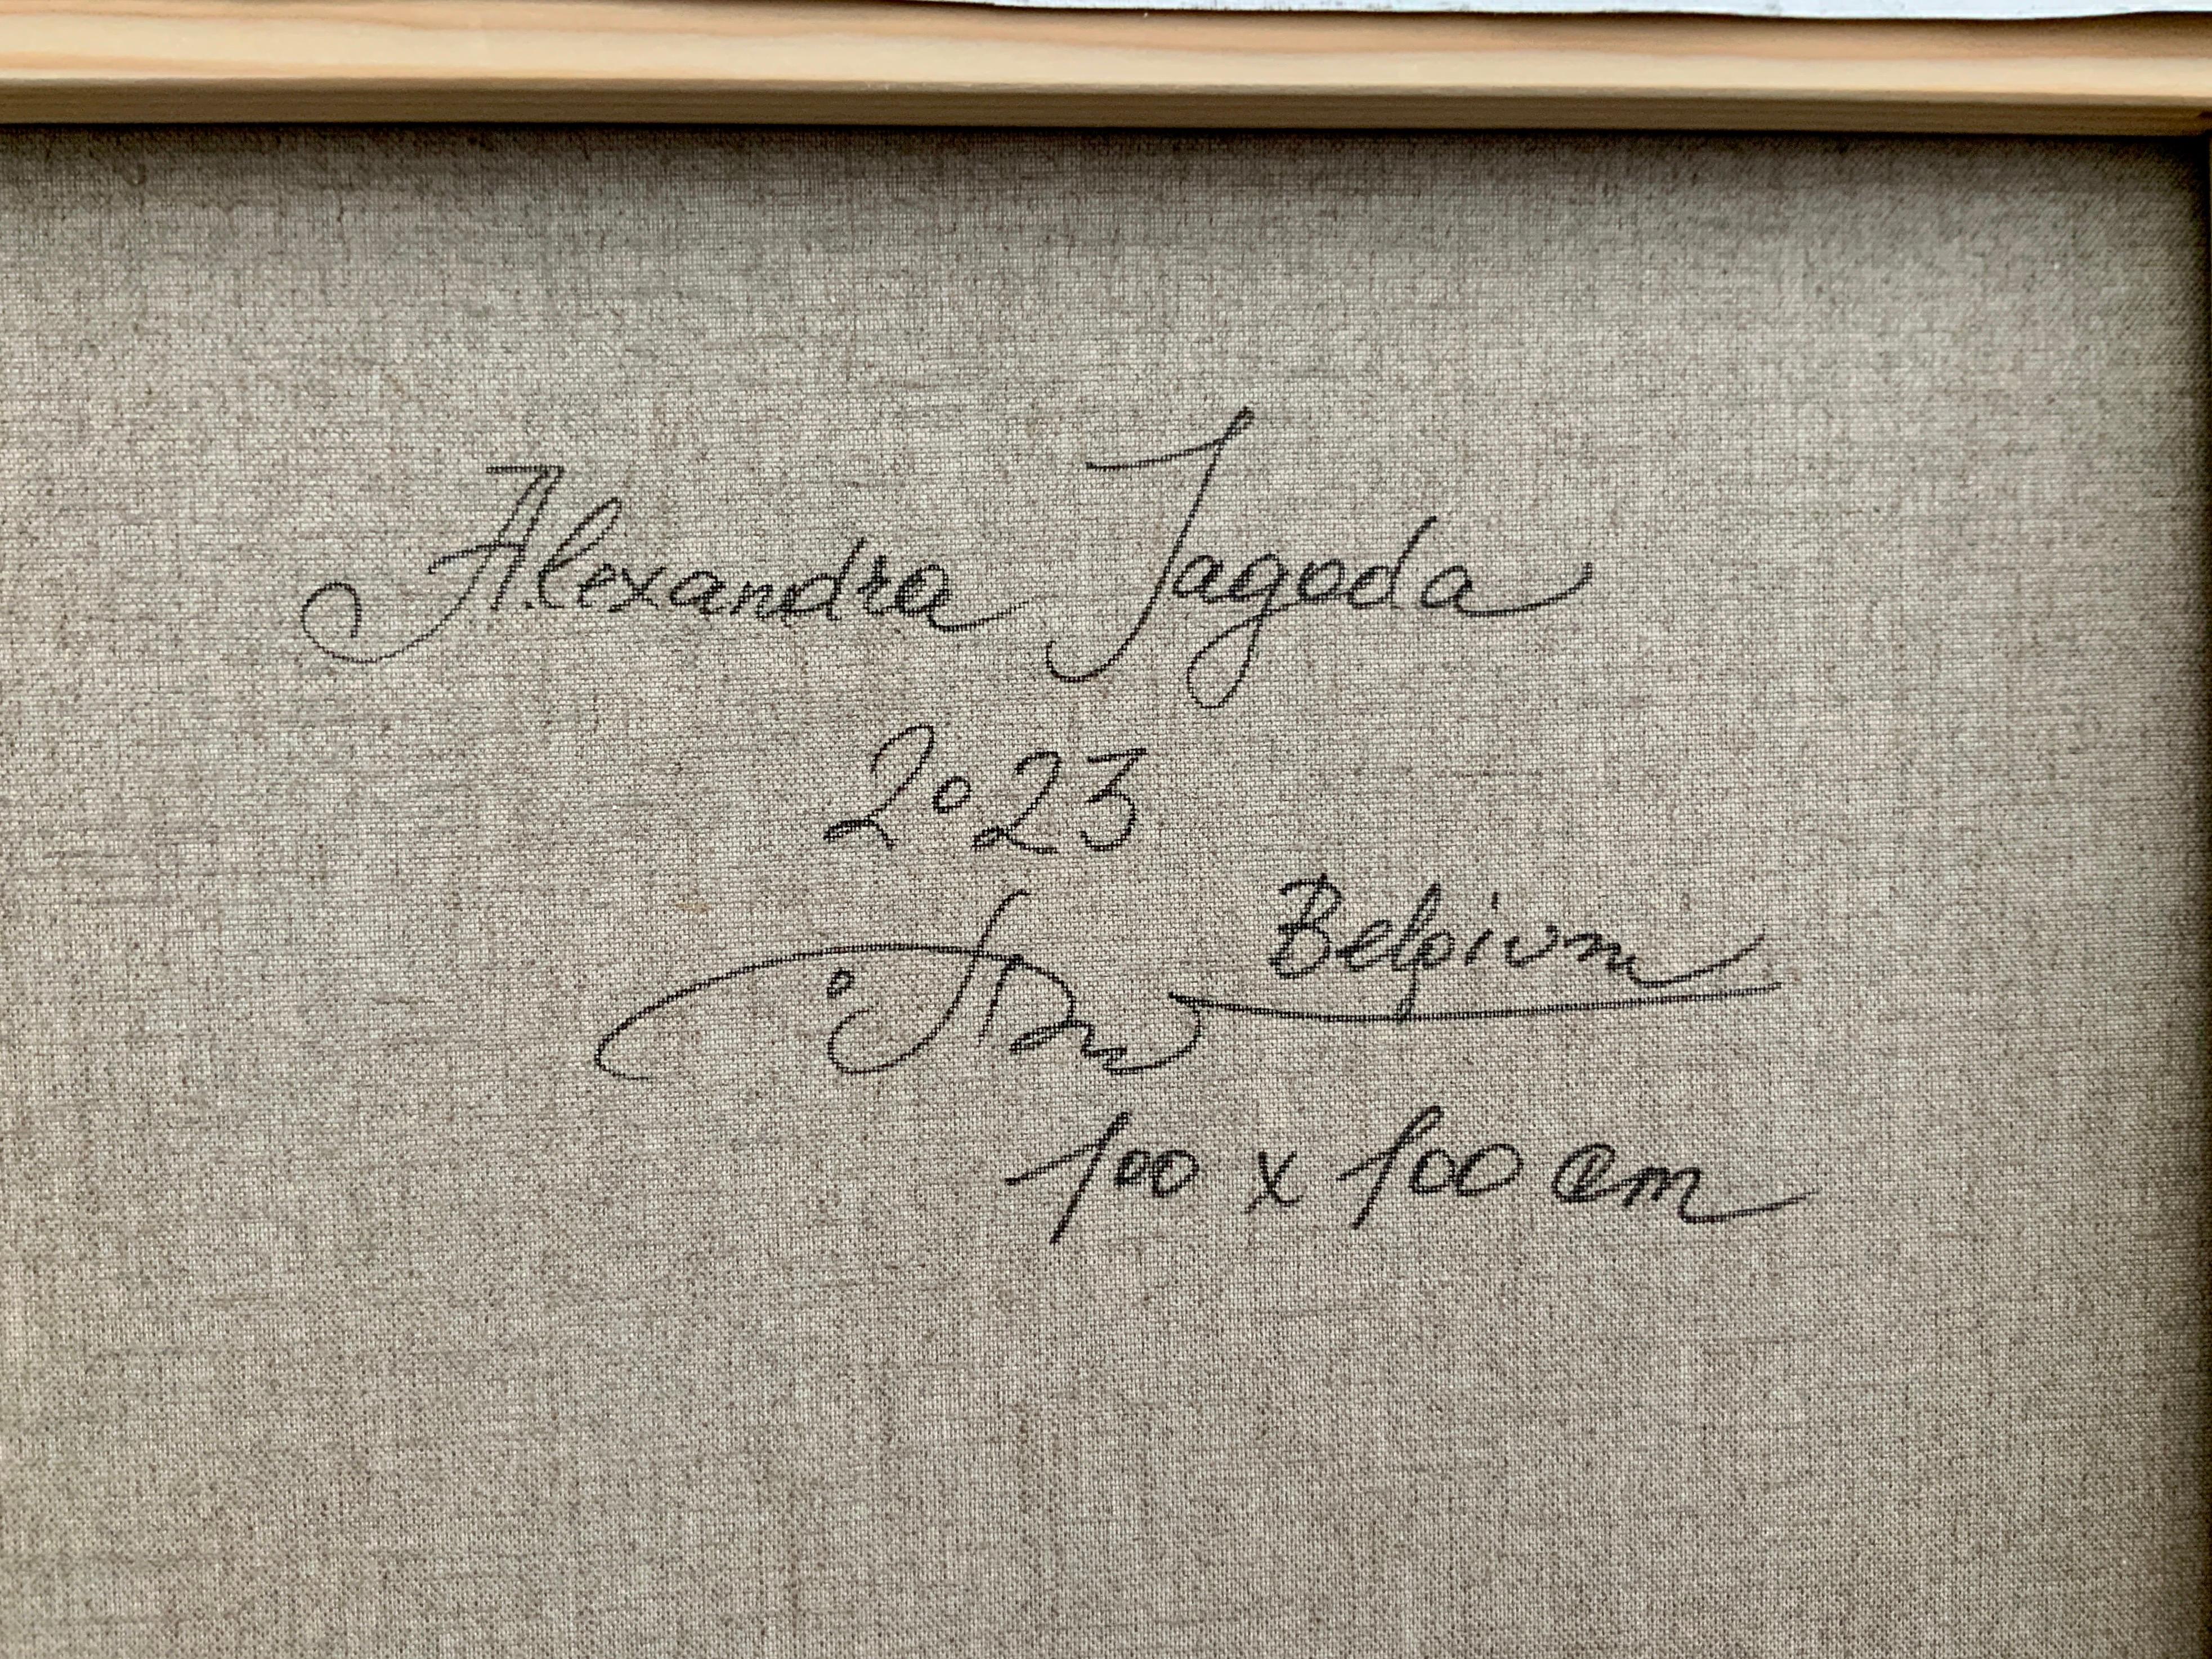 Alexandra Jagoda
2023
Belgium
100 x 100 cm